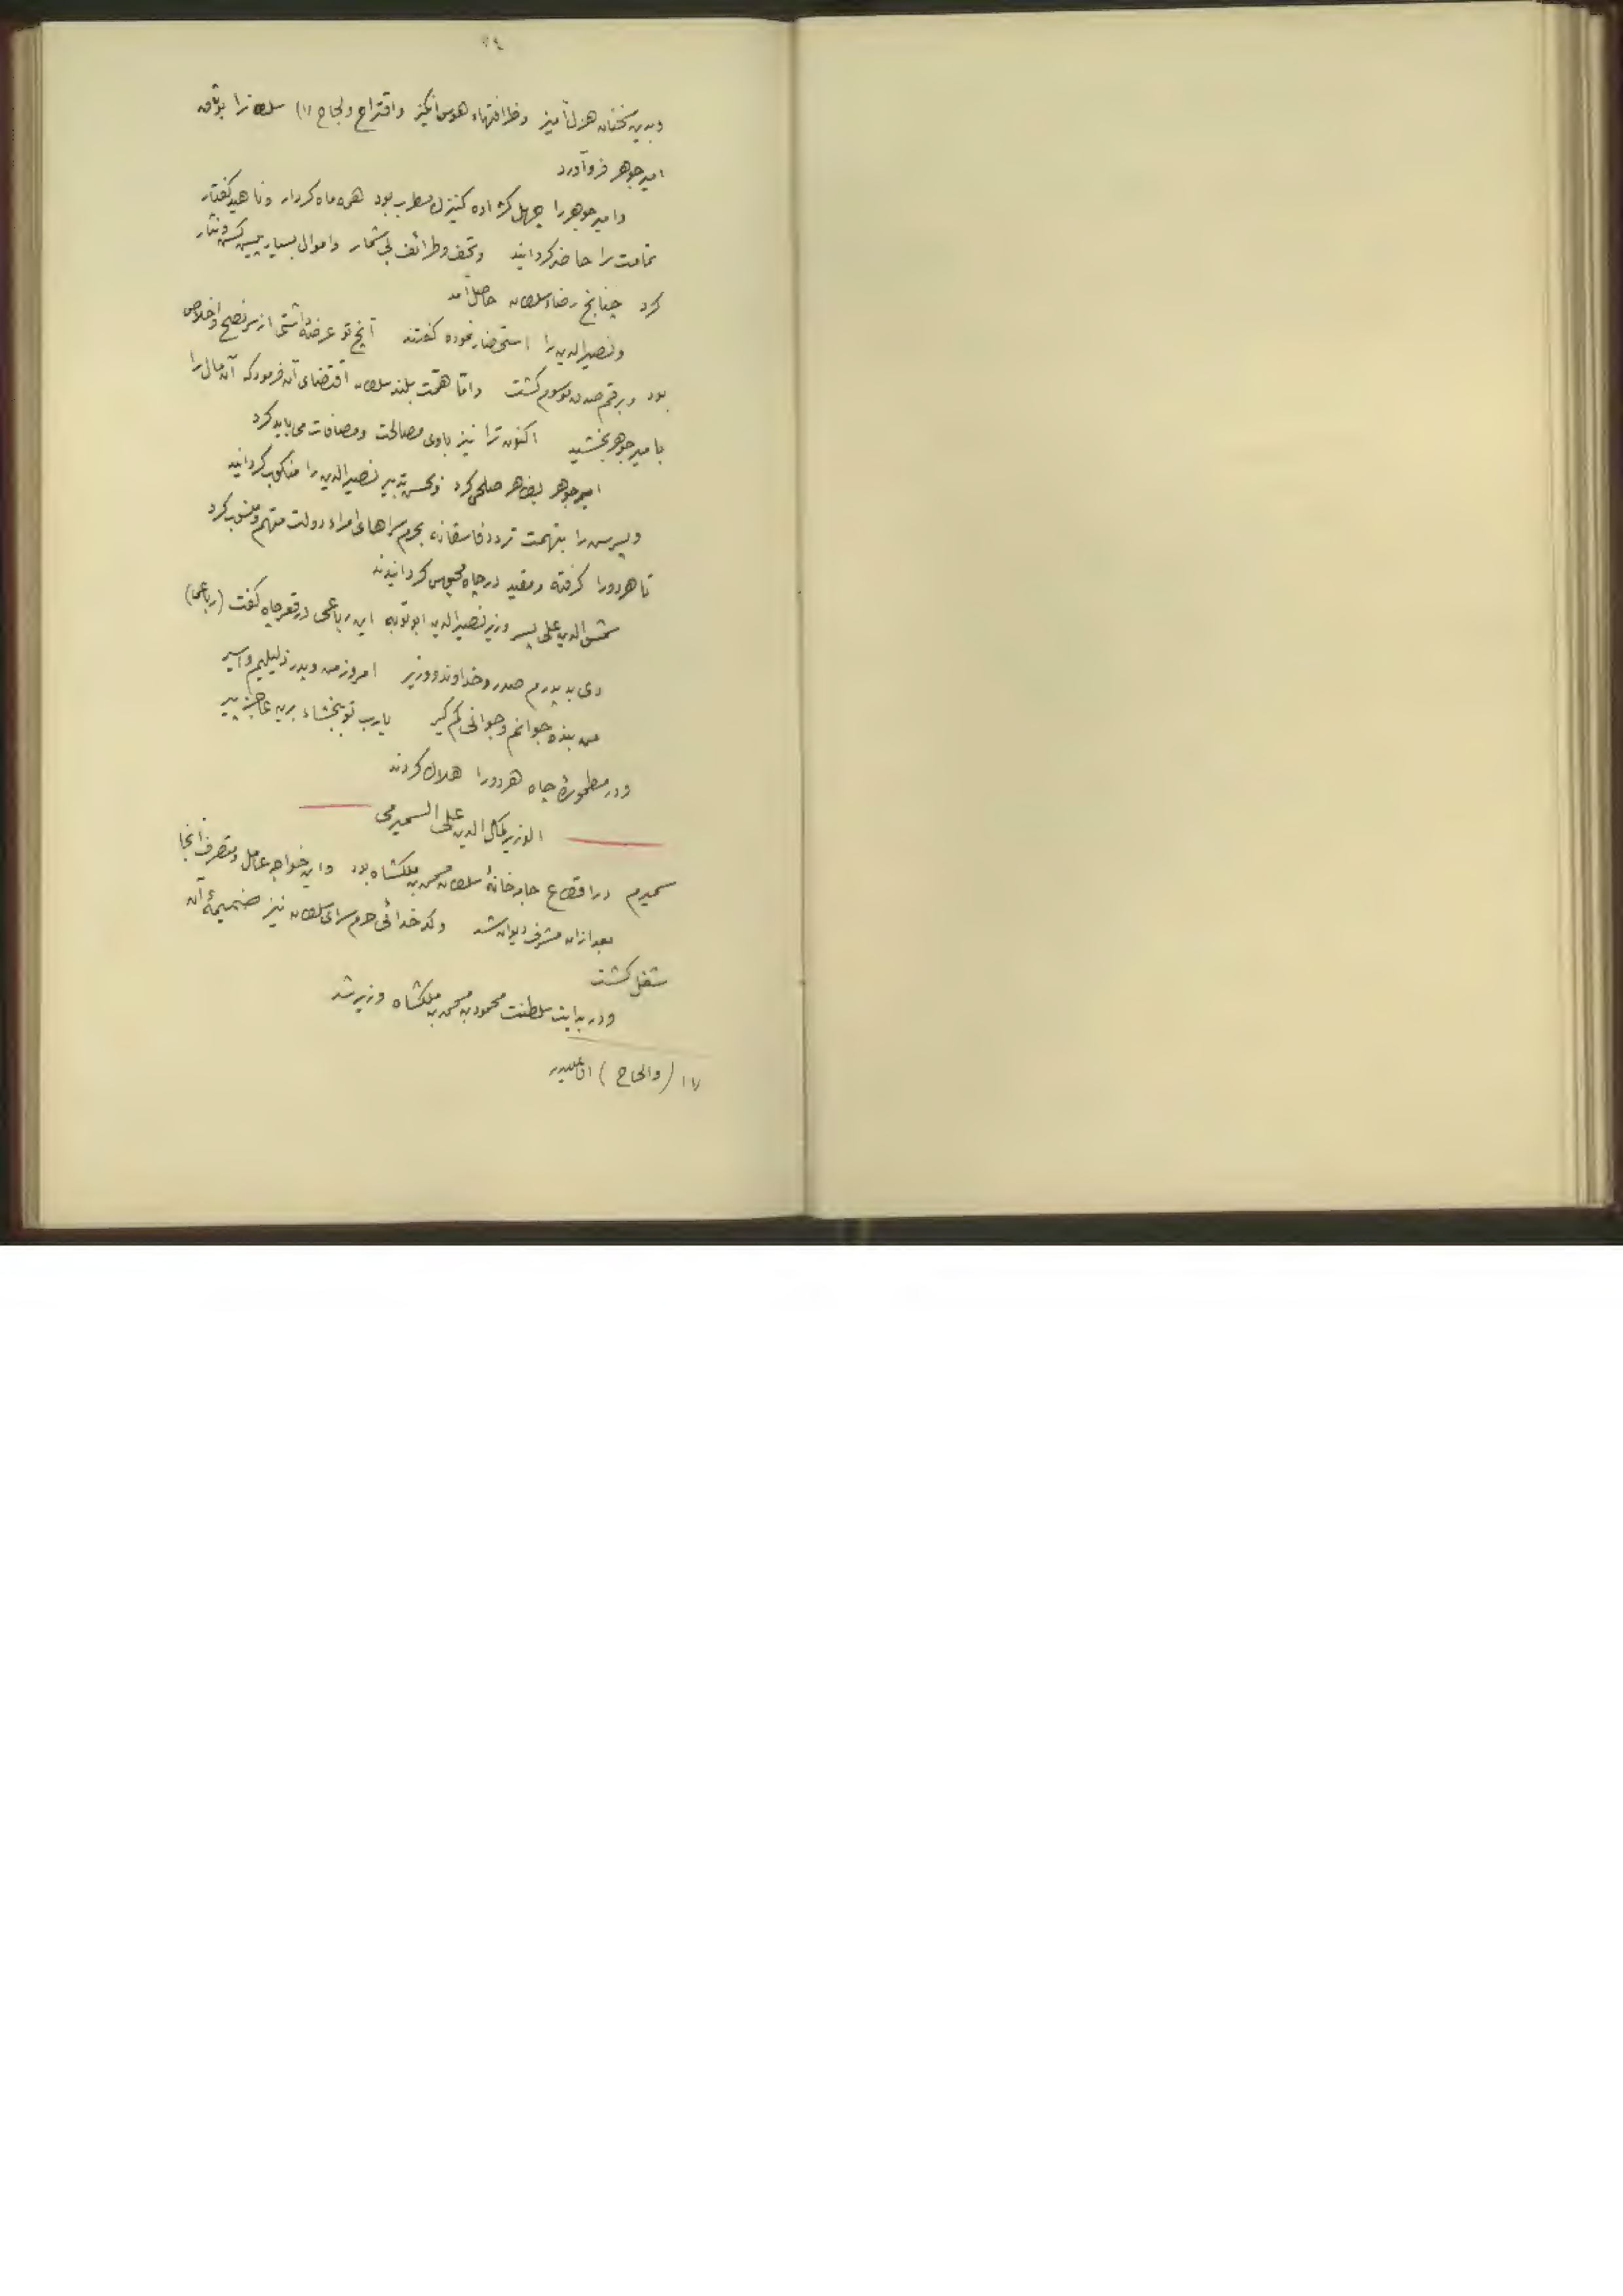 وبدین سخنان هزل آمیز وظرافتهاء هوس انگیز واقتراح ولجاج (۱) سلطانرا بوثاق
امیر جوهر فروآورد
وامیر جوهررا چهل کنیزك مطرب بود همه ماه کردار وناهید گفتار
تمامت را حاضر کردانید وتحف وطرائف بی شمار واموال بسیار پیشکش ونثار
کرد چنانچ رضاء سلطان حاصل آمد
ونصیرالدین را استحضار نموده گفتند آنچ تو عرضه داشتی از سر نصح واخلاص
بود وبرقم صدق موسوم کشت واما همت بلند سلطان اقتضای آن فرمود که آن مال را
بامیر جوهر بخشید اکنون ترا نیز باوی مصالحت ومصافات می باید کرد
امیر جوهر بظاهر صلحی کرد وبحسن تدبیر نصیرالدین را منکوب کردانید
وپسرش را بتهمت تردد فاسقانه بحرم سراهای امراء دولت متهم ومنسوب کرد
تا هر دورا گرفته ومقید در چاه محبوس کردانیدند
شمس الدین علی پسر وزیر نصیرالدین ابو توبه این رباعی در قعر چاه گفت (رباعی)
دی بد پدرم صدر وخداوند ووزیر امروز من وپدر ذلیلیم واسیر
من بنده جوانم وجوانی کم گیر یارب تو ببخشاء برین عاجز پیر
ودر مطمورۀ چاه هر دورا هلاك کردند
الوزیر کمال الدین علی السمیرمی
سمیرم در اقطاع جامه خانۀ سلطان محمد بن ملکشاه بود واین خواجه عامل ومتصرف آنجا
بعد ازان مشرف دیوان شد وکدخدائی حرم سرای سلطان نیز ضمیمۀ آن
شغل کشت
ودر بدایت سلطنت محمود بن محمد بن ملکشاه وزیر شد
(۱) (والحاح)